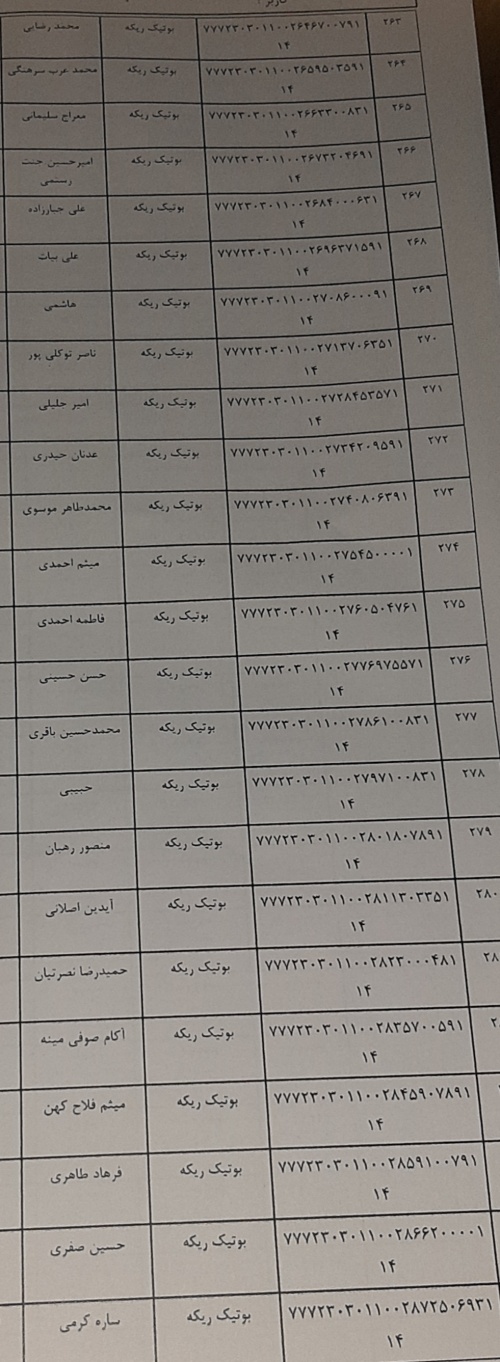 ۲۶۳ ۷۷۷۲۳۰۳۰۱۱۰۰۲۶۴۶۷۰۰۷۹۱ بوتیک ریکه محمد رضایی
۱۴
۲۶۴ ۷۷۷۲۳۰۳۰۱۱۰۰۲۶۵۹۵۰۳۵۹۱ بوتیک ریکه محمد عرب سرهنگی
۱۴
۲۶۵ ۷۷۷۲۳۰۳۰۱۱۰۰۲۶۶۳۳۰۰۸۳۱ بوتیک ریکه معراج سلیمانی
۱۴
۲۶۶ ۷۷۷۲۳۰۳۰۱۱۰۰۲۶۷۳۲۰۴۶۹۱ بوتیک ریکه امیرحسین جنت
۱۴ رستمی
۲۶۷ ۷۷۷۲۳۰۳۰۱۱۰۰۲۶۸۴۰۰۰۶۳۱ بوتیک ریکه علی جبارزاده
۱۴
۲۶۸ ۷۷۷۲۳۰۳۰۱۱۰۰۲۶۹۶۳۷۱۵۹۱ بوتیک ریکه علی بیات
۱۴
۲۶۹ ۷۷۷۲۳۰۳۰۱۱۰۰۲۷۰۸۶۰۰۰۹۱ بوتیک ریکه هاشمی
۱۴
۲۷۰ ۷۷۷۲۳۰۳۰۱۱۰۰۲۷۱۳۷۰۶۳۵۱ بوتیک ریکه ناصر توکلی پور
۱۴
۲۷۱ ۷۷۷۲۳۰۳۰۱۱۰۰۲۷۲۸۴۵۳۵۷۱ بوتیک ریکه امیر خلیلی
۱۴
۲۷۲ ۷۷۷۲۳۰۳۰۱۱۰۰۲۷۳۴۲۰۹۵۹۱ بوتیک ریکه عدنان حیدری
۱۴
۲۷۳ ۷۷۷۲۳۰۳۰۱۱۰۰۲۷۴۰۸۰۶۳۹۱ بوتیک ریکه محمدطاهر موسوی
۱۴
۲۷۴ ۷۷۷۲۳۰۳۰۱۱۰۰۲۷۵۴۵۰۰۰۰۱ بوتیک ریکه میثم احمدی
۱۴
۲۷۵ ۷۷۷۲۳۰۳۰۱۱۰۰۲۷۶۰۵۰۴۷۶۱ بوتیک ریکه فاطمه احمدی
۱۴
۲۷۶ ۷۷۷۲۳۰۳۰۱۱۰۰۲۷۷۶۹۷۵۵۷۱ بوتیک ریکه حسن حسینی
۱۴
۲۷۷ ۷۷۷۲۳۰۳۰۱۱۰۰۲۷۸۶۱۰۰۸۳۱ بوتیک ریکه محمدحسین باقری
۱۴
۲۷۸ ۷۷۷۲۳۰۳۰۱۱۰۰۲۷۹۷۱۰۰۸۳۱ بوتیک ریکه حبیبی
۱۴
۲۷۹ ۷۷۷۲۳۰۳۰۱۱۰۰۲۸۰۱۸۰۷۸۹۱ بوتیک ریکه منصور رهبان
۱۴
۲۸۰ ۷۷۷۲۳۰۳۰۱۱۰۰۲۸۱۱۳۰۳۳۵۱ بوتیک ریکه آیدین اصلانی
۱۴
۲۸ ۷۷۷۲۳۰۳۰۱۱۰۰۲۸۲۳۰۰۰۴۸۱ بوتیک ریکه حمیدرضا نصرتیان
۱۴
۷۷۷۲۳۰۳۰۱۱۰۰۲۸۳۵۷۰۰۵۹۱ بوتیک ریکه آکام صوفی مینه
۱۴
۷۷۷۲۳۰۳۰۱۱۰۰۲۸۴۵۹۰۷۸۹۱ بوتیک ریکه میثم فلاح کهن
۱۴
۷۷۷۲۳۰۳۰۱۱۰۰۲۸۵۹۱۰۰۷۹۱ بوتیک ریکه فرهاد طاهری
۱۴
۷۷۷۲۳۰۳۰۱۱۰۰۲۸۶۶۲۰۰۰۰۱ بوتیک ریکه حسین صفری
۱۴
۷۷۷۲۳۰۳۰۱۱۰۰۲۸۷۲۵۰۶۹۳۱ بوتیک ریکه ساره کرمی
۱۴